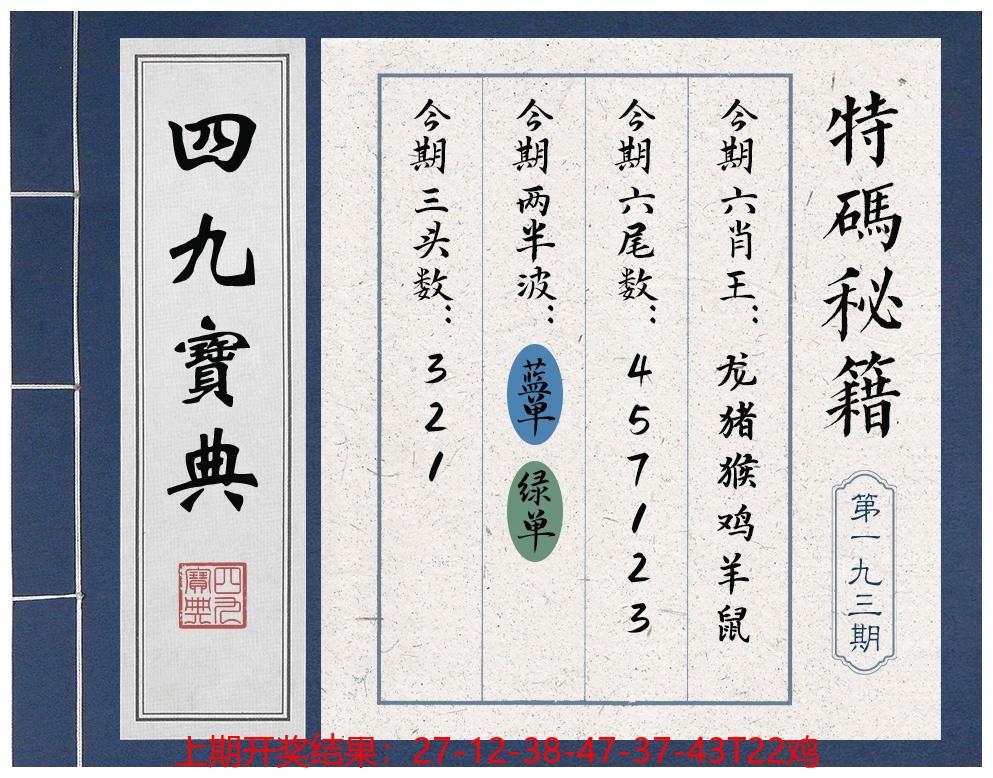 特碼秘籍
第一九三期
今期六肖王：龙猪猴鸡羊鼠
今期六尾数：457123
今期两半波：蓝单 绿单
今期三头数：321
四九寶典
四九寶典
上期开奖结果：27-12-38-47-37-43T22鸡